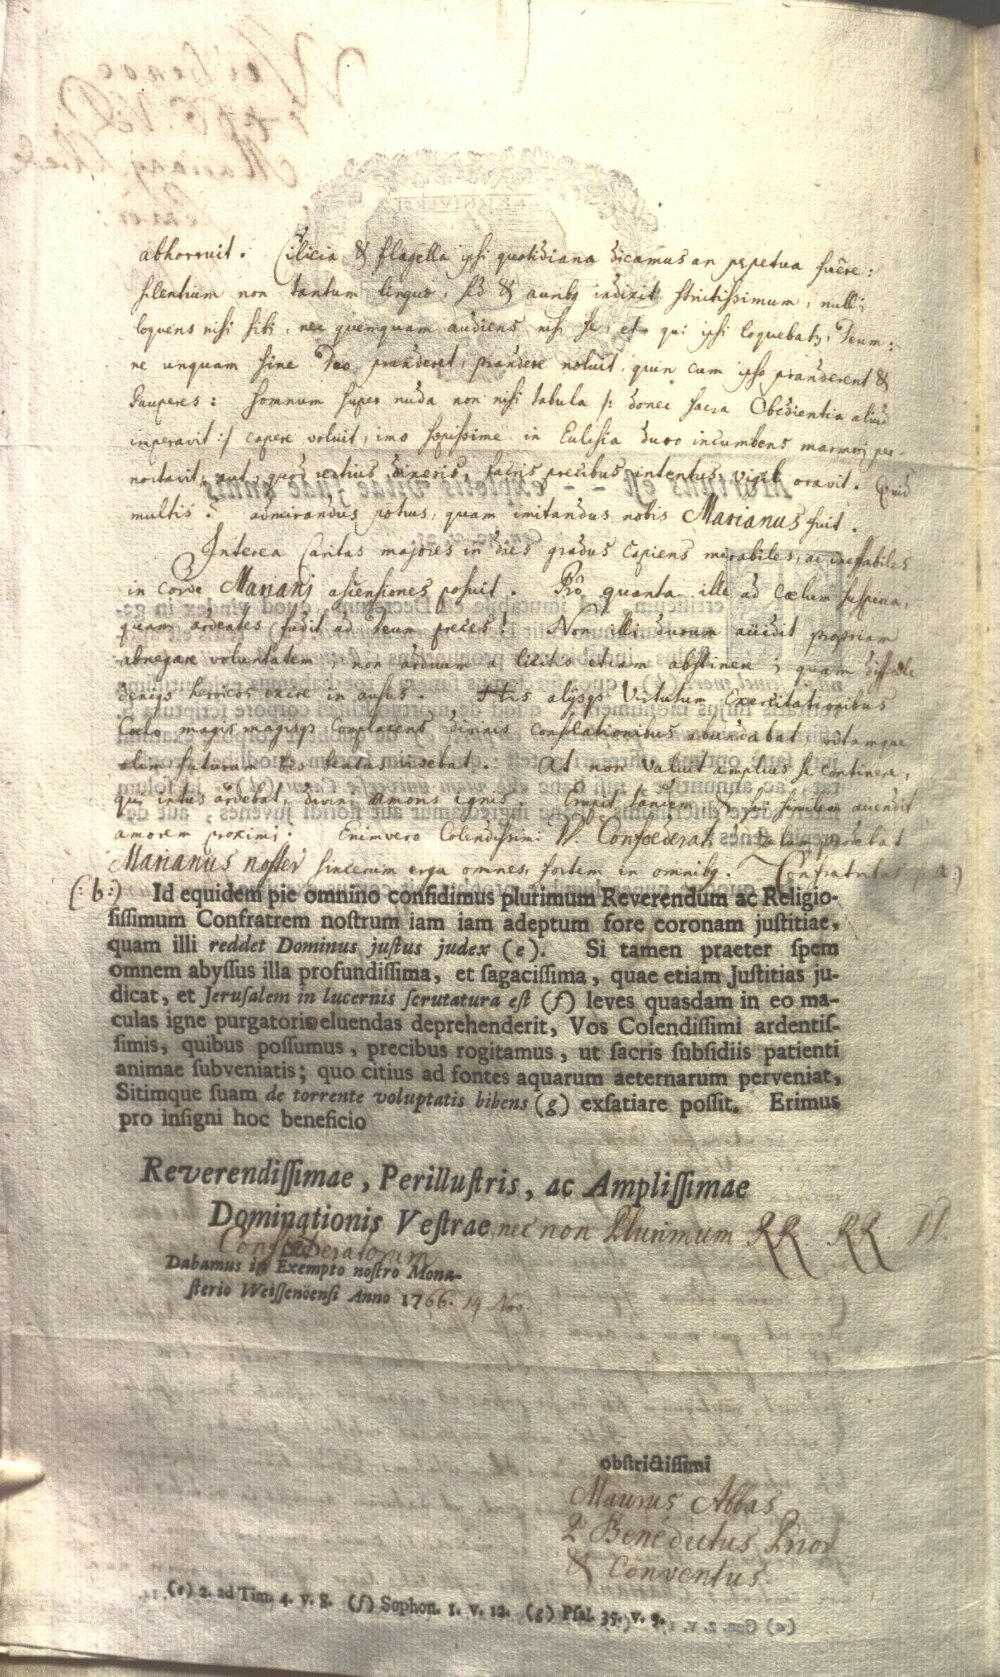 abhorruit. Cilicia & flagella ipsi quotidiana dicamus an perpetua fuêre:
silentium non tantum linguæ, sed & auribq indixit strictissimum, nulli
loquens nisi sibi, nec quemquam audiens nisi se, et qui ipsi loquebatz, Deum:
ne unquam sine Deo pranderet, prandere noluit, quin cum ipso pranderent &
Pauperes: somnum super nuda non nisi tabula /: donec sacra Obedientia aliud
imperavit :/ capere voluit, imo sæpissime in Ecclesia duro incumbens marmori per-
noctavit, aut, quod rectius dixeris, sacris precibus intentus vigil oravit. Quid
multis? admirandus potius, quam imitandus nobis Marianus fuit.
Interea Caritas majores in dies gradus capiens mirabiles, ac ineffabiles
in corde Mariani ascensiones posuit. Prô quanta ille ad Cælum suspiria,
quam ardentes fudit ad Deum preces! Non illi durum accidit propriam
abnegare voluntatem, non arduum a licitis etiam abstinere, quam difficile
deniqs heroicos exire in ausus. His alijsqs Virtutum Exercitationibus
Coelo magis magisqs complacens divinis consolationibus abundabat, vitamque
olim futuram bis beatus visebat. At non valuit amplius se continere,
qui intus ardebat, divini amoris ignis. Erupit tandem & sui similem accendit
amorem proximi. Enimvero Colendissimi D. Confoederati palam probabat
Marianus noster sincerum erga omnes, fortem in omnibq. Confratribus (: a :)
(: b :) Id equidem pie omnino confidimus plurimum Reverendum ac Religio-
sissimum Confratrem nostrum iam iam adeptum fore coronam justitiae,
quam illi reddet Dominus justus judex (e). Si tamen praeter spem
omnem abyssus illa profundissima, et sagacissima, quae etiam Justitias ju-
dicat, et Jerusalem in lucernis scrutatura est (f) leves quasdam in eo ma-
culas igne purgatorio eluendas deprehenderit, Vos Colendissimi ardentis-
simis, quibus possumus, precibus rogitamus, ut sacris subsidiis patienti
animae subveniatis; quo citius ad fontes aquarum aeternarum perveniat,
Sitimque suam de torrente voluptatis bibens (g) exsatiare possit. Erimus
pro insigni hoc beneficio
Reverendissimae, Perillustris, ac Amplissimae
Dominationis Vestrae, nec non Plurimum RR. RR. D.
Confoederatorum
Dabamus in Exempto nostro Mona-
sterio Weissenöensi Anno 1766. 14 Nov.
obstrictissimi
Maurus Abbas
P Benedictus Prior
& Conventus.
(e) 2. ad Tim. 4. v. 8. (f) Sophon. 1. v. 12. (g) Psal. 35. v. 9.